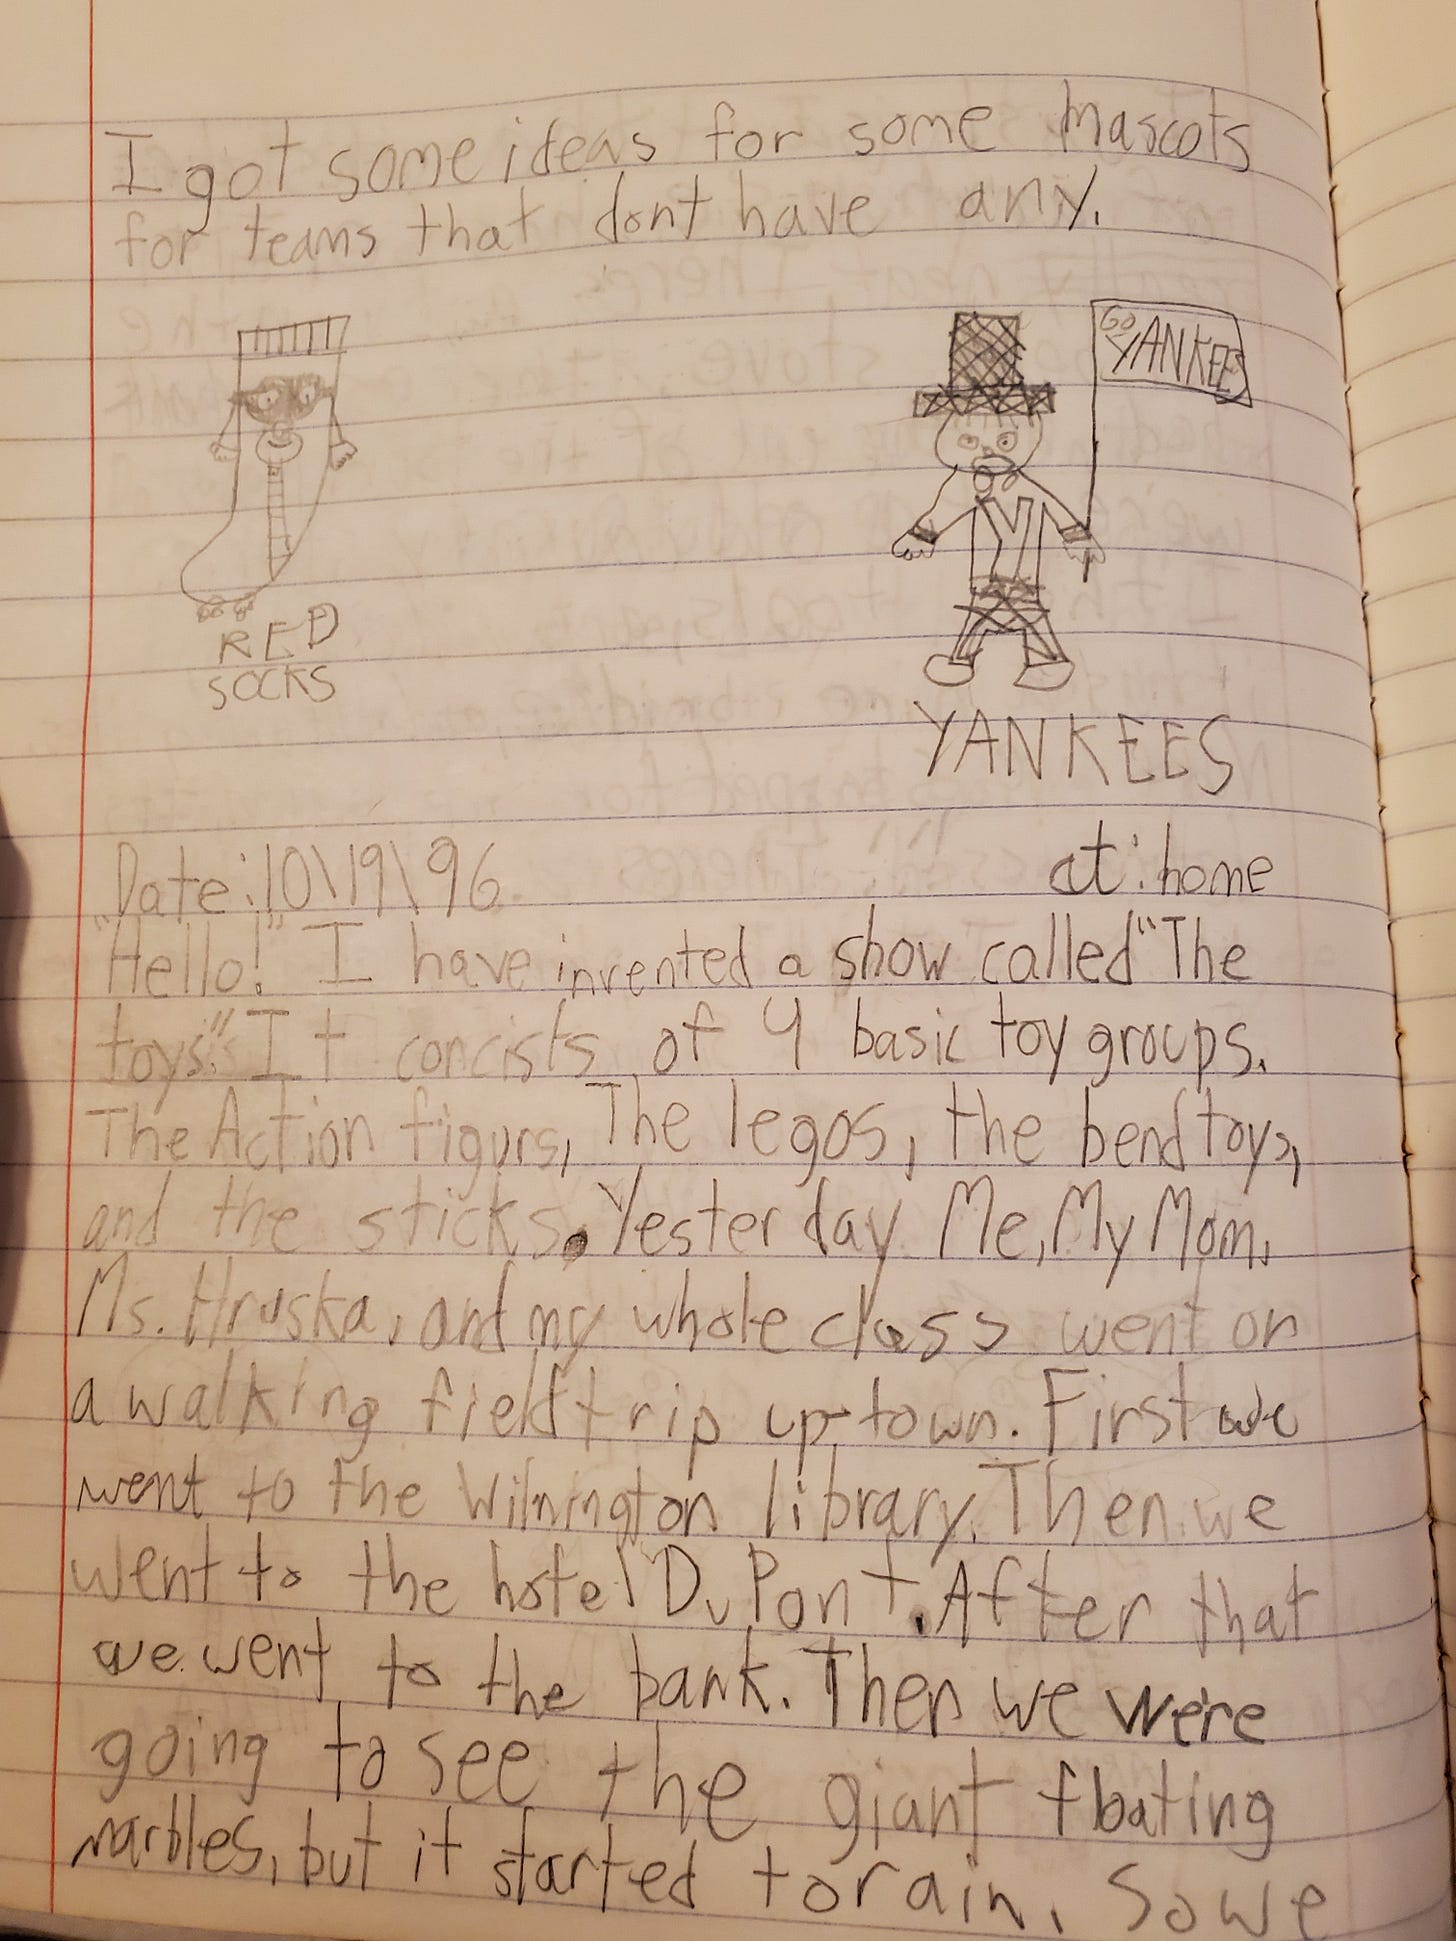 I got some ideas for some Mascots
for teams that dont have any.
GO
YANKEES
RED
SOCKS
YANKEES
Date:10\19\96 at:home
"Hello!" I have invented a show called "The
toys." It concists of 4 basic toy groups.
The Action figurs, The legos, the bend toys,
and the sticks. Yesterday Me, My Mom,
Ms. Hruska, and my whole class went on
a walking field trip up-town. First we
went to the Wilmington library. Then we
went to the hotel DuPont. After that
we went to the bank. Then we were
going to see the giant floating
marbles, but it started to rain. So we